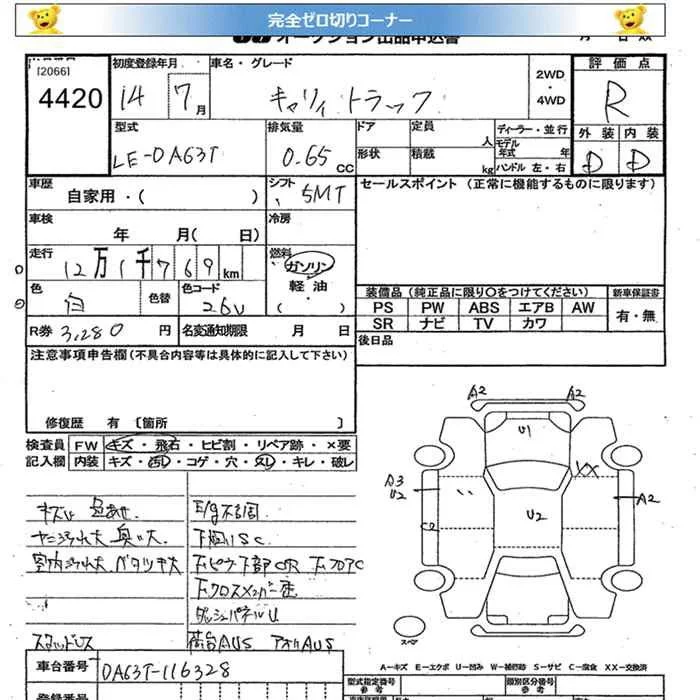 完全ゼロ切りコーナー
オークション出品申込書
[2066]
4420
初度登録年月
14 7月
車名・グレード
キャリィ トラック
2WD
・
4WD
評価点
R
型式
LE-DA63T
排気量
0.65 CC
ドア
定員
人
形状
積載
kg
ディーラー・並行
モデル年式 年
ハンドル 左・右
外装 内装
D D
車歴
自家用・( )
シフト
5MT
セールスポイント (正常に機能するものに限ります)
車検
年 月( 日)
冷房
走行
12万1千769km
燃料
ガソリン
軽油
( )
色
白
色替
色コード
26U
装備品(純正品に限り○をつけてください)
新車保証書
PS PW ABS エアB AW
SR ナビ TV カワ
有・無
R券 3,280 円
名変通知期限 月 日
後日品
注意事項申告欄(不具合内容等は具体的に記入して下さい)
修復歴 有 〔箇所 〕
検査員記入欄
FW キズ・飛石・ヒビ割・リペア跡・×要
内装 キズ・汚れ・コゲ・穴・スレ・キレ・破レ
キズU 色あせ
ヤニ汚れ大 臭い大
室内汚れ大 ベタツキ大
スタッドレス
E/g不調
下廻りSC
ダッシュパネルU
荷台AUS アオリAUS
A2 A2
U1
XX
A3
U2
U2
A2
C2
スペア
A-キズ E-エクボ U-凹み W-補修跡 S-サビ C-腐食 XX-交換済
車台番号
DA63T-116328
登録番号
型式指定番号
参考
類別区分番号
参考